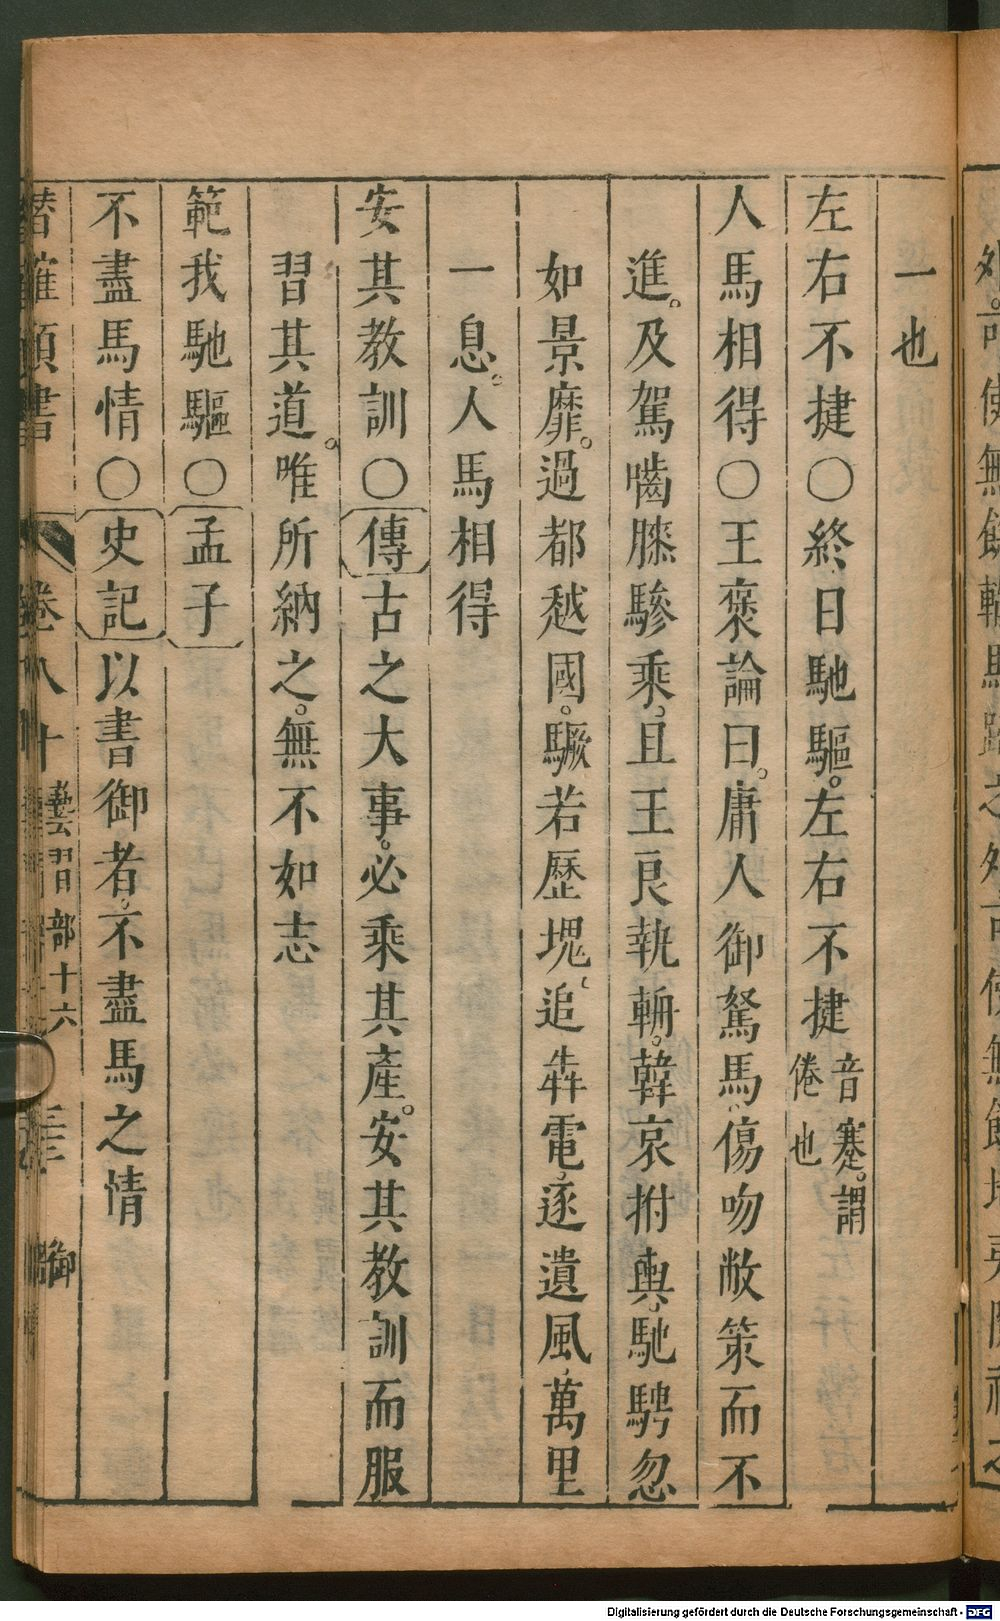 一也
左右不捷〇終日馳驅。左右不捷音蹇。謂倦也
人馬相得〇王襃論曰。庸人御駑馬傷吻敝策而不
進。及駕嚙膝驂乘。且王良執靶。韓哀拊輿。馳騁忽
如景靡。過都越國。蹶若歷塊。追犇電。逐遺風。萬里
一息。人馬相得
安其教訓〇傳古之大事。必乘其產。安其教訓而服
習其道。唯所納之。無不如志
範我馳驅〇孟子
不盡馬情〇史記以書御者。不盡馬之情
潛確類書 卷八十 藝習部十六 御
Digitalisierung gefördert durch die Deutsche Forschungsgemeinschaft - DFG